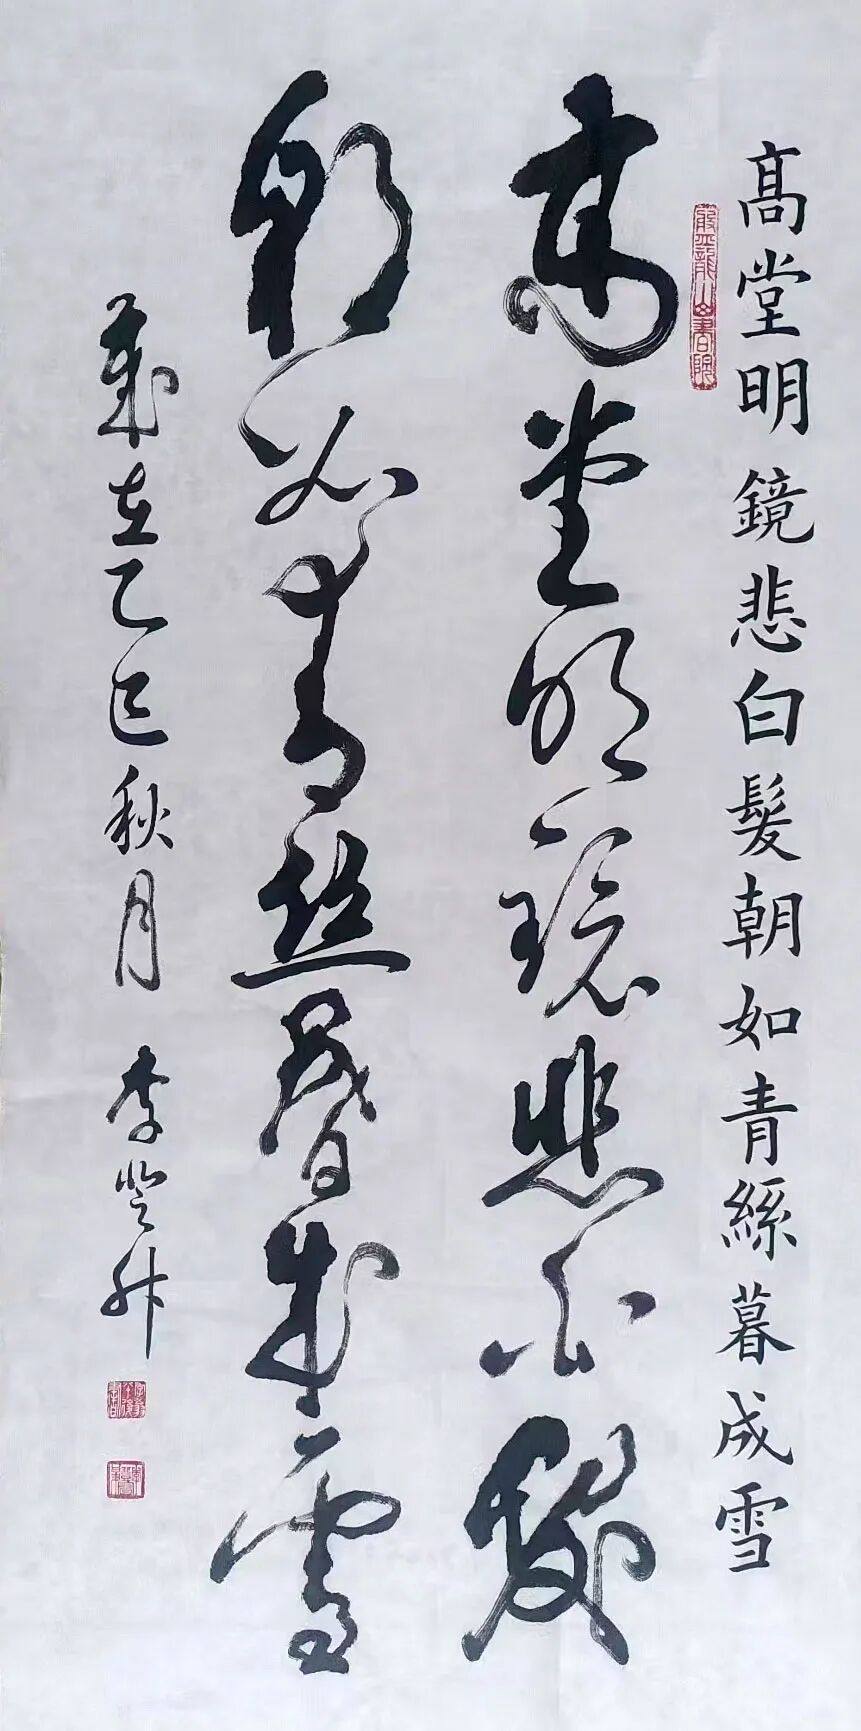 高堂明鏡悲白髮朝如青絲暮成雪
高堂明鏡悲白髮
朝如青絲暮成雪
歲在乙巳秋月 李登